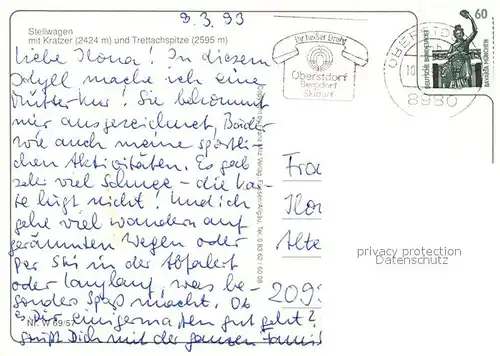 8.3.93
Stellwagen
mit Kratzer (2424 m) und Trettachspitze (2595 m)
Liebe Ilona! In diesem
Idyll mache ich eine
Mutterkur! Sie bekommt
mir ausgezeichnet, Bäder
wie auch meine sportli-
chen Aktivitäten. Es gab
sehr viel Schnee - die Kar-
te lügt nicht! Und ich
gehe viel wandern auf
geräumten Wegen oder
per Ski in der Abfahrt
oder Langlauf, was be-
sonders Spaß macht. Ob
es Dir einigermaßen gut geht?
grüßt Dich mit der ganzen Famili
Nr. W 69/5
Verlag Tel. 0 83 62 / 60 08
Ihr heißer Draht
Oberstdorf
Bergdorf
Skidorf
OBERSTDO
10.
8980
60
DEUTSCHE BUNDESPOST
BAVARIA MÜNCHEN
Frau
Ilon
Alte
209
privacy protection
Datenschutz